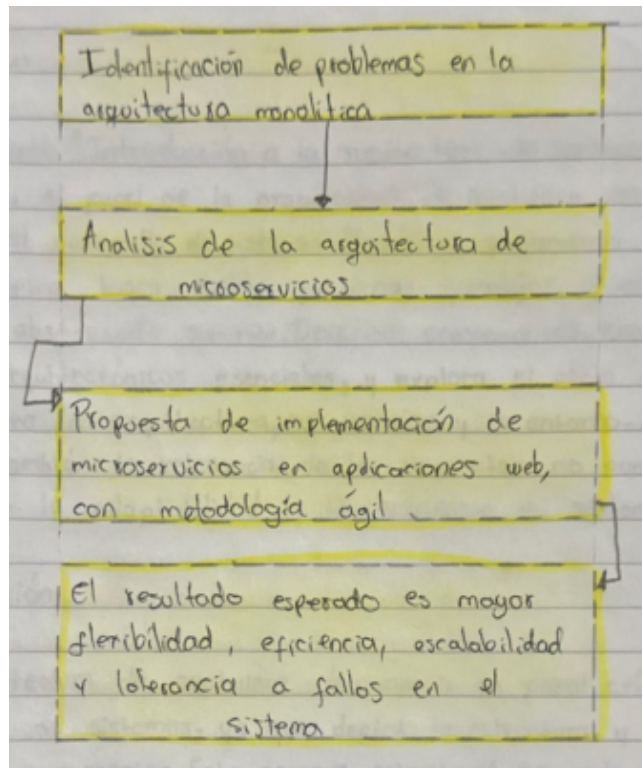 Identificación de problemas en la
arquitectura monolítica
Analisis de la arquitectura de
microservicios
Propuesta de implementación de
microservicios en aplicaciones web,
con metodología ágil
El resultado esperado es mayor
flexibilidad, eficiencia, escalabilidad
y tolerancia a fallos en el
sistema